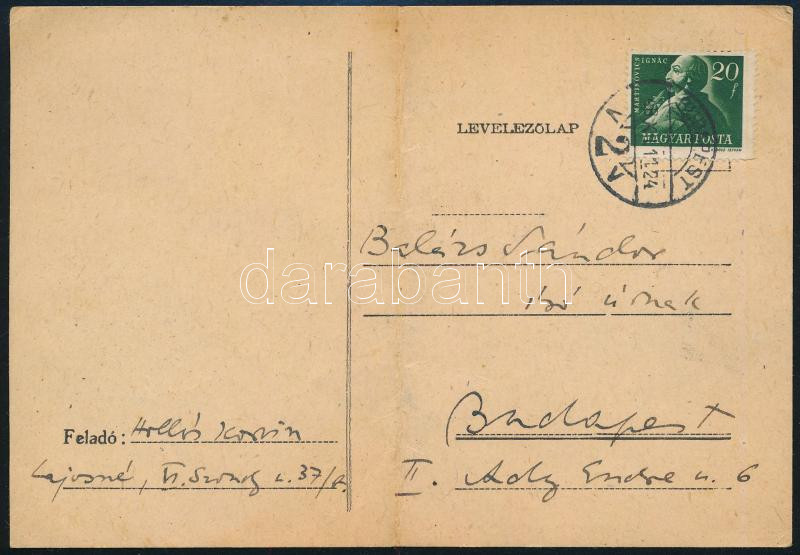 MARTINOVICS IGNÁC
20 f
MAGYAR POSTA
LEVELEZŐLAP
BUDAPEST
2
11.24
Balázs Sándor
író úrnak
darabanth
Budapest
II. Ady Endre u. 6
Feladó: Hollós Korvin
Lajosné, VI. Szondy u. 37/a.